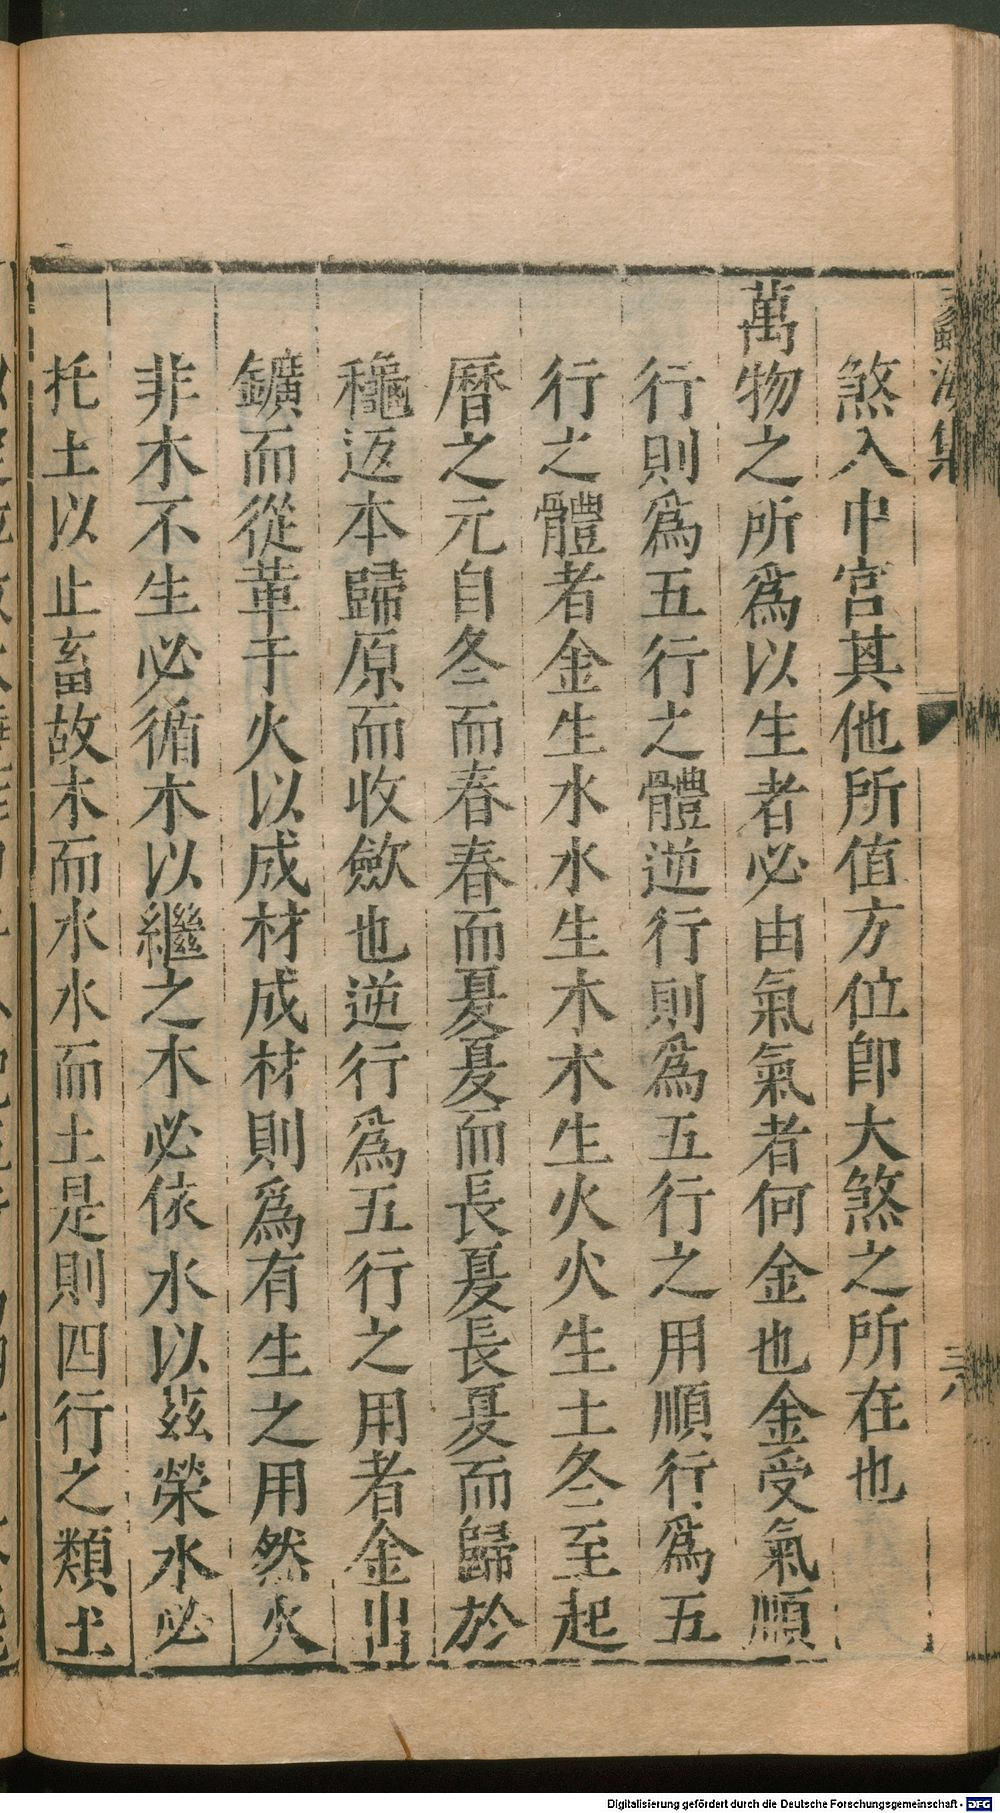 煞入中宮其他所值方位卽大煞之所在也
萬物之所爲以生者必由氣氣者何金也金受氣順
行則爲五行之體逆行則爲五行之用順行爲五
行之體者金生水水生木木生火火生土冬至起
曆之元自冬而春春而夏夏而長夏長夏而歸於
穐返本歸原而收斂也逆行爲五行之用者金出
鑛而從革于火以成材成材則爲有生之用然火
非木不生必循木以繼之木必依水以茲榮水必
托土以止畜故木而水水而土是則四行之類土
Digitalisierung gefördert durch die Deutsche Forschungsgemeinschaft - DFG